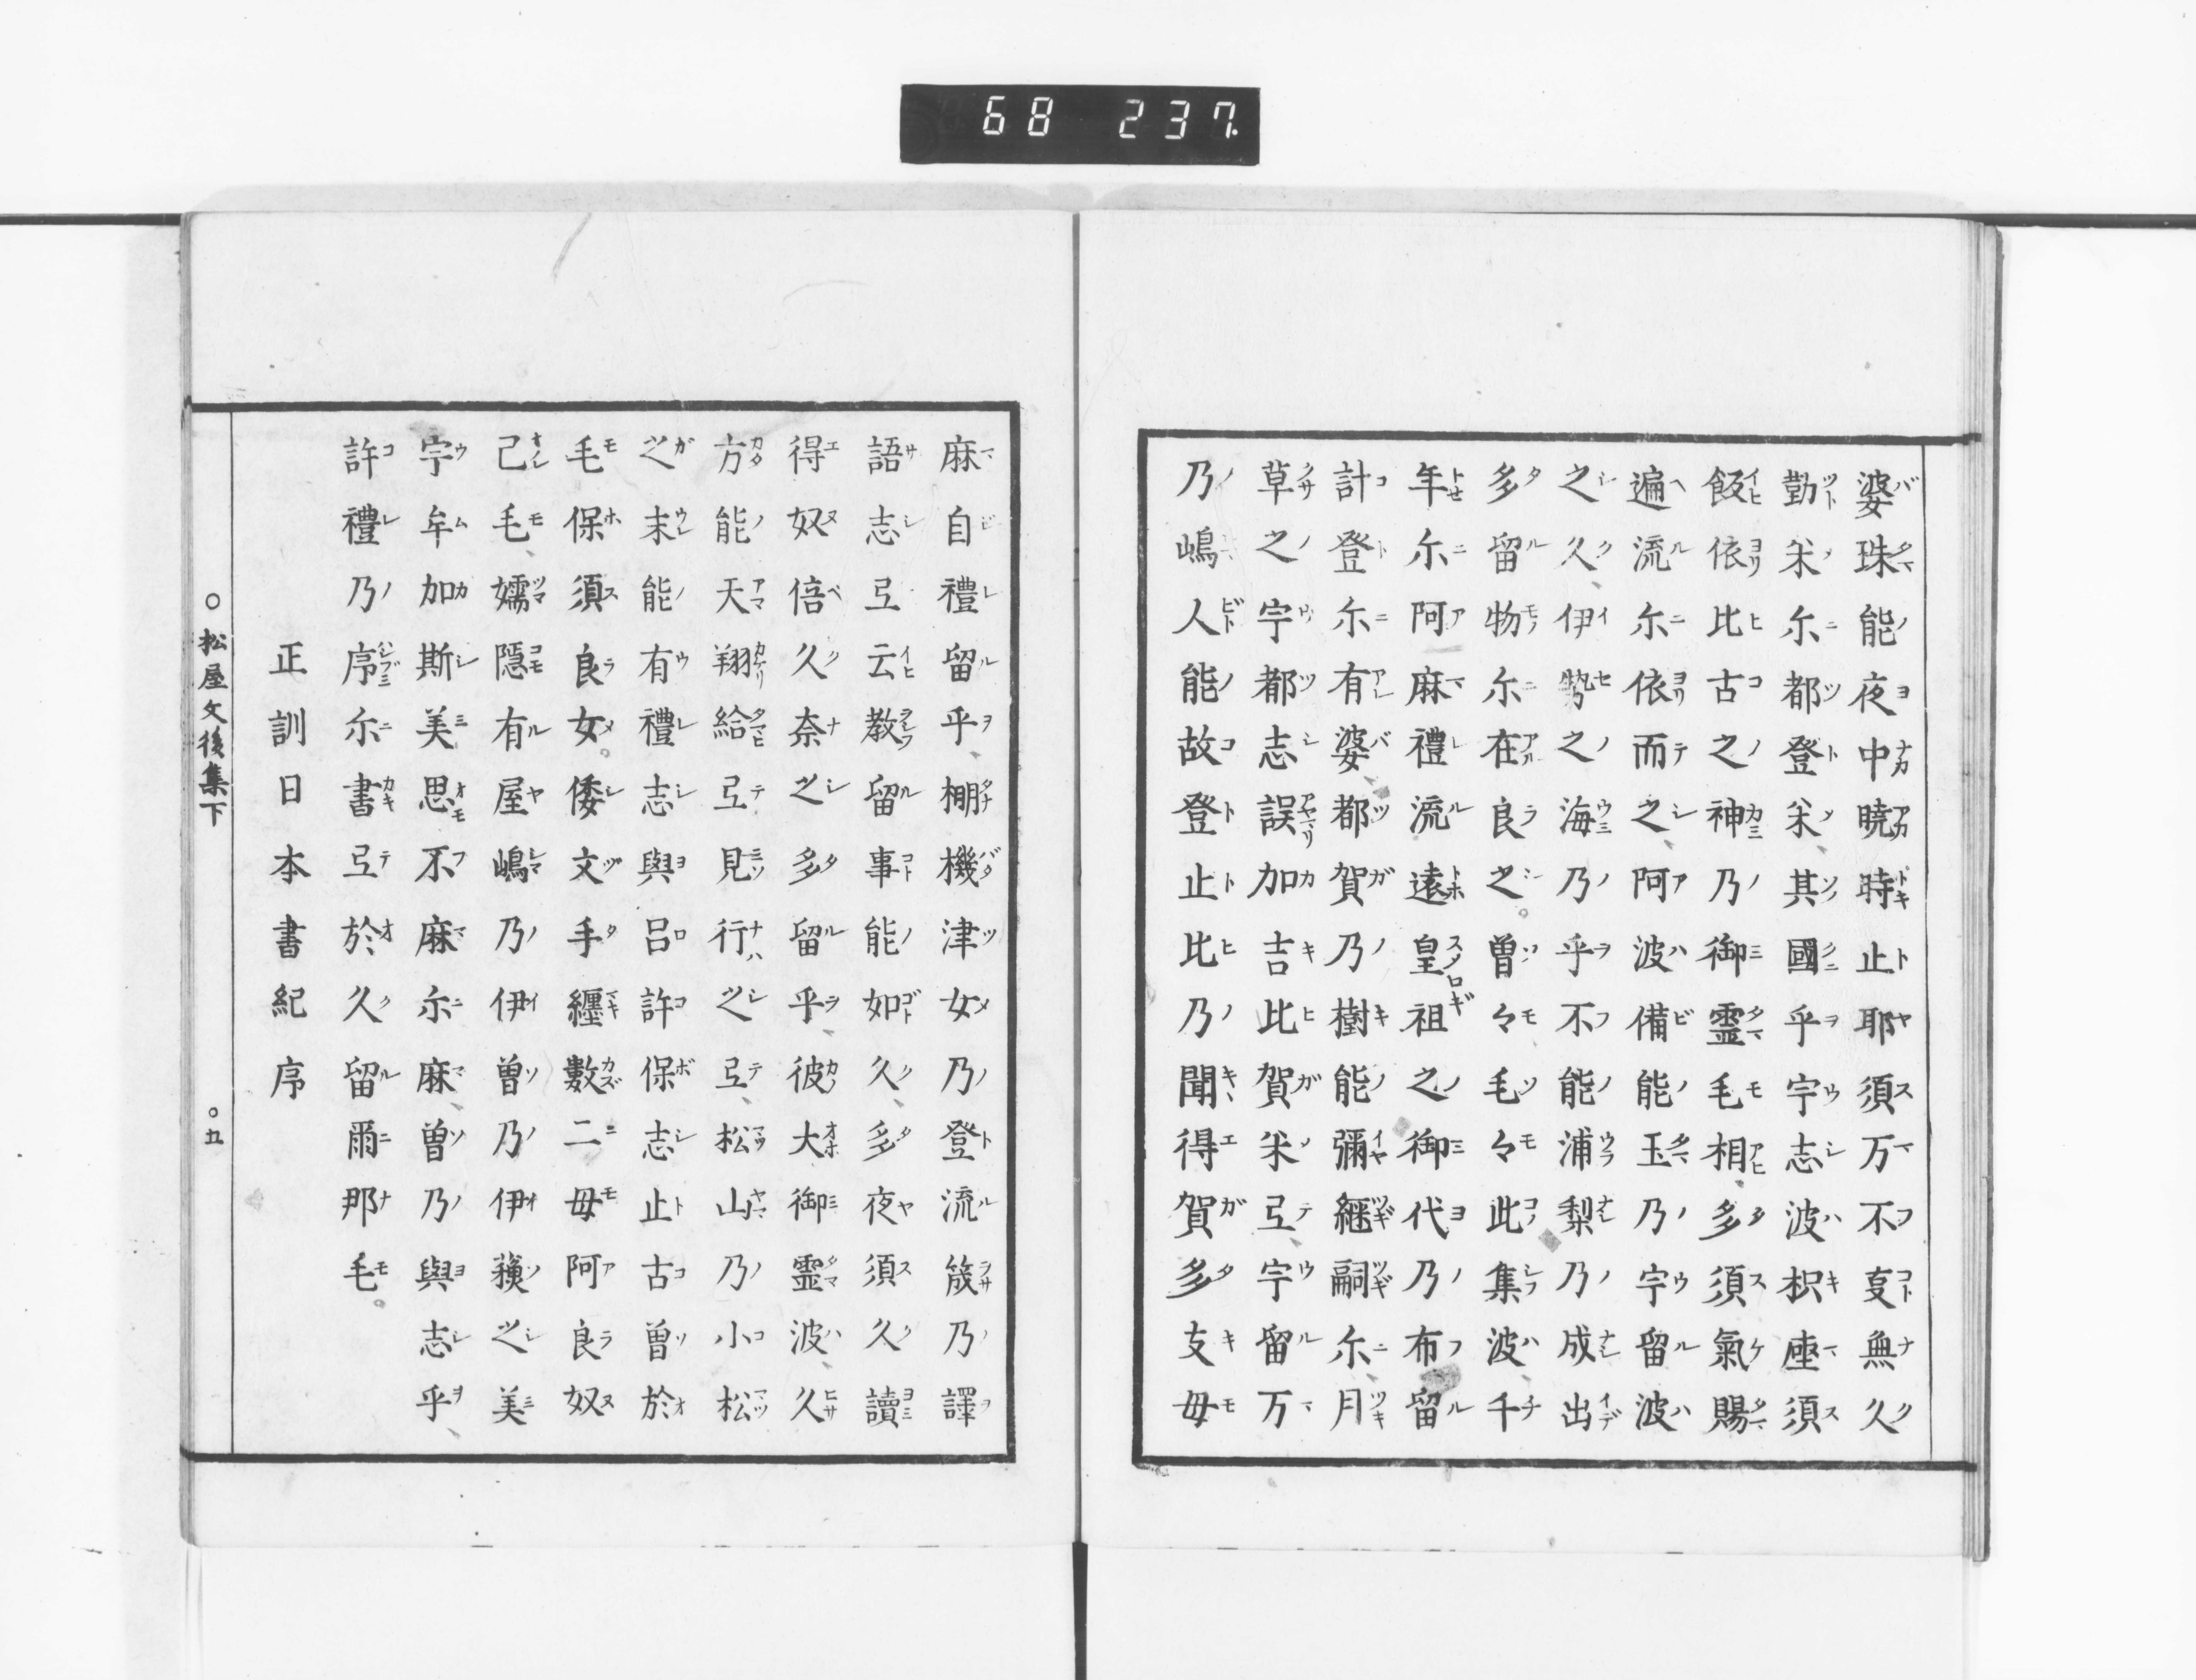 68 237.
婆珠能夜中曉時止耶須万不支無久
勤米尓都登米其國乎宇志波枳座須
飯依比古之神乃御霊毛相多須氣賜
遍流尓依而之阿波備能玉乃宇留波
之久伊勢之海乃乎不能浦梨乃成出
多留物尓在良之。曽々毛々此集波千
年尓阿麻禮流遠皇祖之御代乃布留
計登尓有婆都賀乃樹能彌繼嗣尓月
草之宇都志誤加吉比賀米弖宇留万
乃嶋人能故登止比乃聞得賀多支毋
麻自禮留乎棚機津女乃登流筬乃譯
語志弖云教留事能如久多夜須久讀
得奴倍久奈之多留乎彼大御霊波久
方能天翔給弖見行之弖松山乃小松
之末能有禮志與呂許保志止古曽於
毛保須良女。倭文手纏數二毋阿良奴
己毛嬬隱有屋嶋乃伊曽乃伊蘓之美
宇牟加斯美思不麻尓麻曽乃與志乎
許禮乃序尓書弖於久留爾那毛。
正訓日本書紀序
○松屋文後集下 ○五